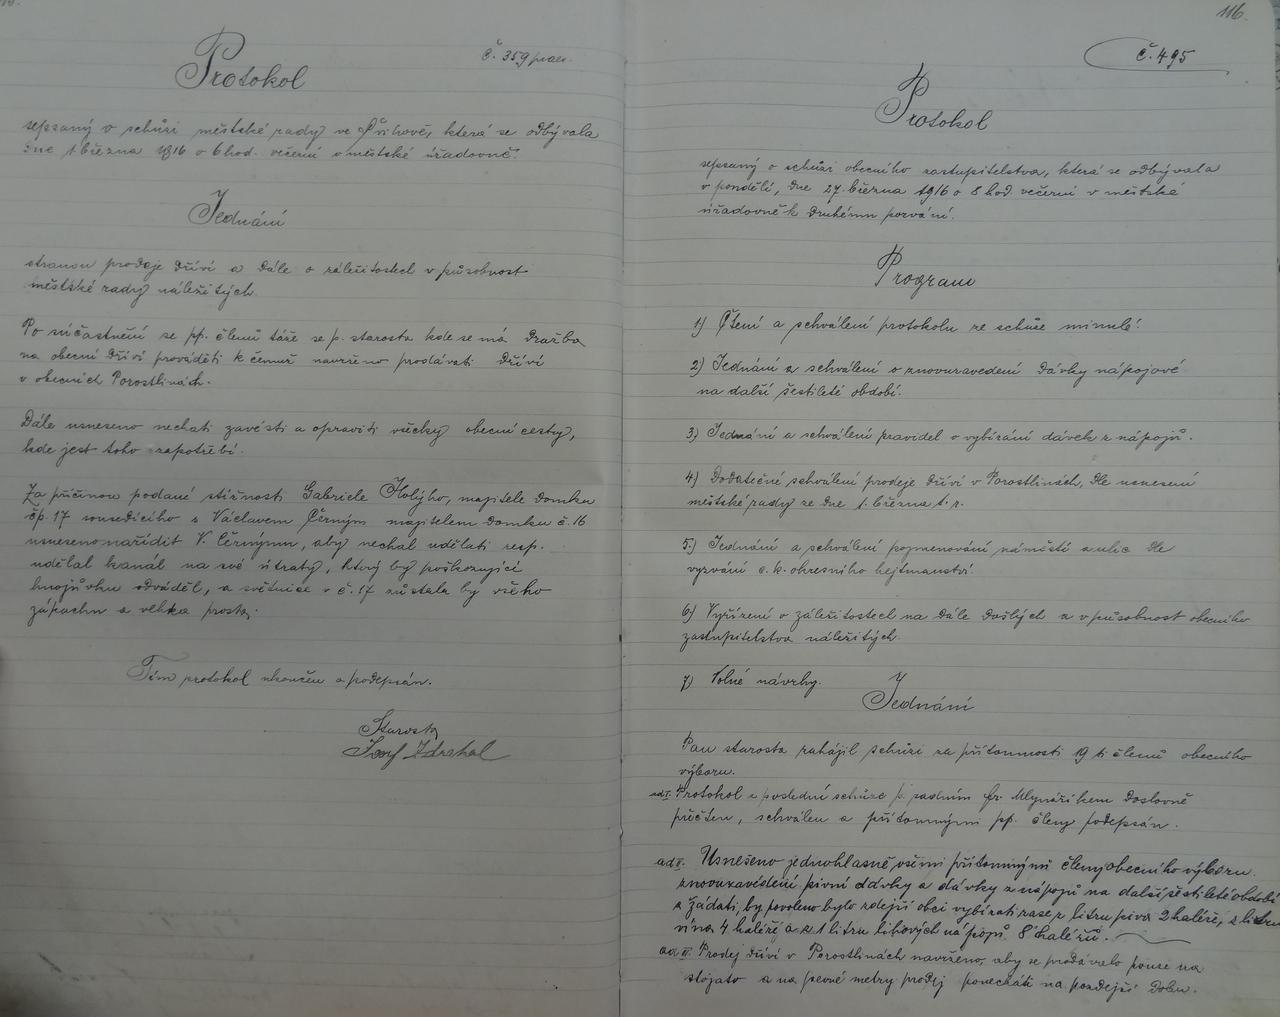 č. 359 praes.
Protokol
sepsaný o schůzi městské rady ve Příkově, která se odbývala
dne 1 března 1916 o 6 hod. večerní v městské úřadovně.
Jednání
stranou prodeje dříví a dále o záležitostech v působnost
městské rady náležitých.
Po súčastnění se pp. členů táže se p. starosta kde se má dražba
na obecní dříví prováděti k čemuž navrženo prodávati dříví
v obecních Porostlinách.
Dále usneseno nechati zavésti a opraviti všecky obecní cesty,
kde jest toho zapotřebí.
Za příčinou podané stížnosti Gabriele Holýho, majitele domku
čp. 17 sousedícího s Václavem Černým majitelem domku č. 16
usneseno naříditi V. Černýmu, aby nechal udělati resp.
udělal kanál na své útraty, který by poškozující
hnojůvku odváděl, a světnice v č. 17 zůstala by všeho
zápachu a vlhka prosta.
Tím protokol ukončen a podepsán.
Starosta
Josef Zdrahal
116.
č. 495
Protokol
sepsaný o schůzi obecního zastupitelstva, která se odbývala
v pondělí, dne 27. března 1916 o 8 hod večerní v městské
úřadovně k druhému pozvání.
Program
1) Čtení a schválení protokolu ze schůze minulé.
2) Jednání a schválení o znovuzavedení dávky nápojové
na další šestileté období.
3) Jednání a schválení pravidel o vybírání dávek z nápojů.
4) Dodatečné schválení prodeje dříví v Porostlinách, dle usnesení
městské rady ze dne 1. března t. r.
5.) Jednání a schválení pojmenování náměstí a ulic dle
vyzvání c. k. okresního hejtmanství.
6) Vyřízení o záležitostech na dále došlých a v působnost obecního
zastupitelstva náležitých.
7) Volné návrhy.
Jednání
Pan starosta zahájil schůzi za přítomnosti 19 ti členů obecního
výboru.
ad I. Protokol z poslední schůze p. radním Fr. Mlynáříkem doslovně
přečten, schválen a přítomnými pp. členy podepsán.
ad II. Usnešeno jednohlasně všemi přítomnými členy obecního výboru
znovuzavedení pivní dávky a dávky z nápojů na další šestileté období
a žádati, by povoleno bylo zdejší obci vybírati zase z litru piva 2 haléře, z litru
vína 4 haléře a z 1 litru lihových nápojů 8 haléřů.
ad IV. Prodej dříví v Porostlinách navrženo, aby se prodávalo pouze na
stojato a na pevné metry prodej ponecháti na pozdější dobu.